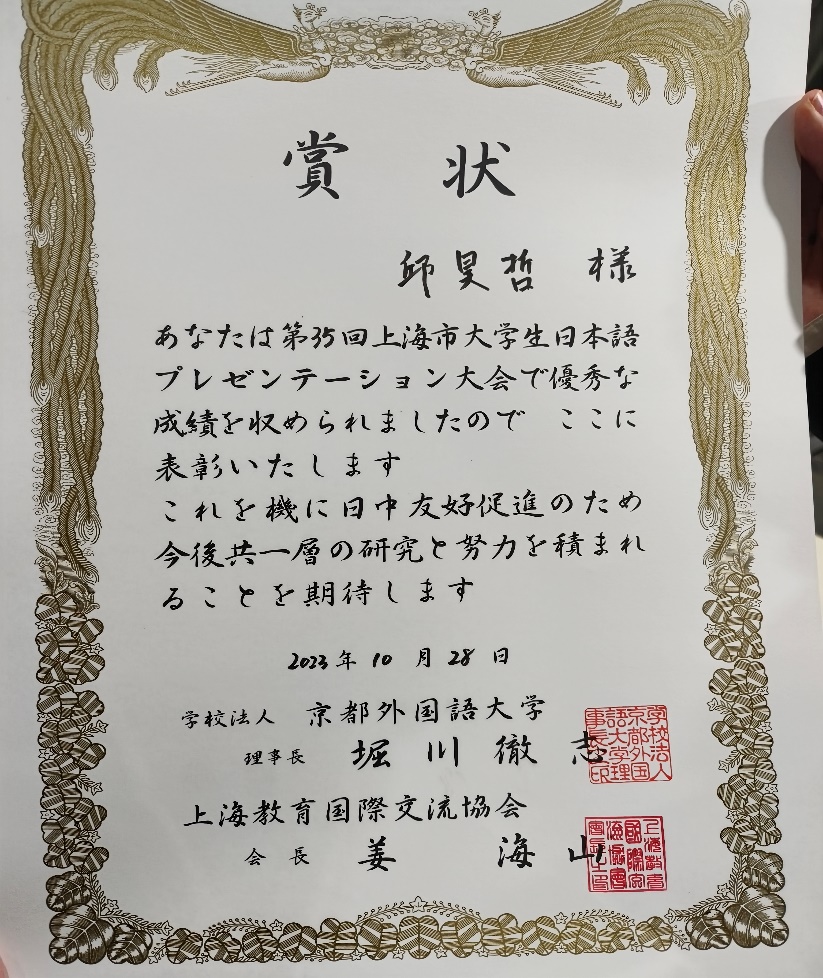 賞状
邱昊哲 様
あなたは第35回上海市大学生日本語
プレゼンテーション大会で優秀な
成績を収められましたので ここに
表彰いたします
これを機に日中友好促進のため
今後共一層の研究と努力を積まれ
ることを期待します
2023年10月28日
学校法人 京都外国語大学
理事長 堀川徹志
学校法人京都外国語大学理事長印
上海教育国際交流協会
会長 姜海山